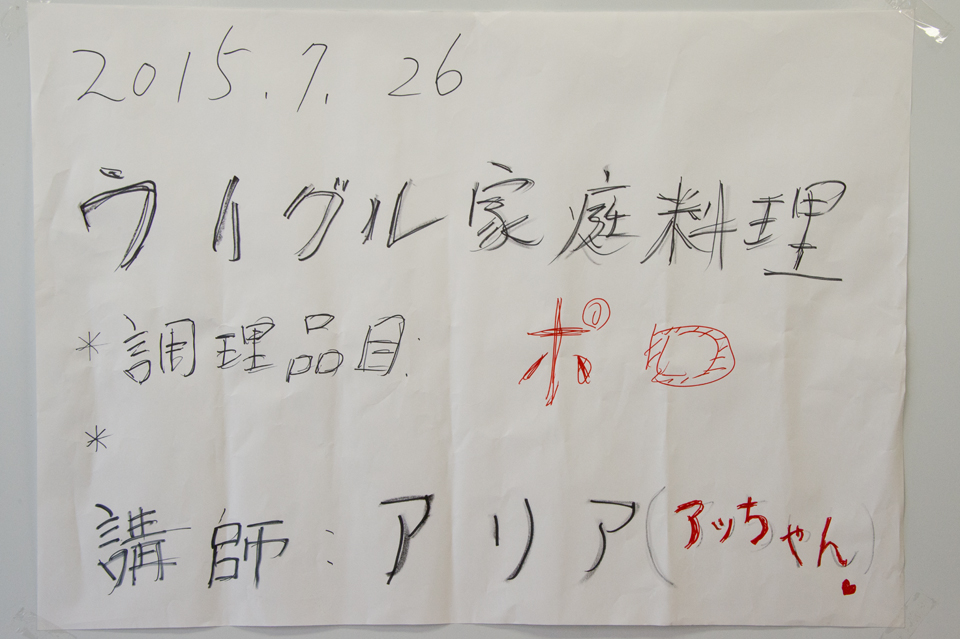 2015.7.26
ウイグル家庭料理
*調理品目: ポロ
*
講師:アリア(アッちゃん)